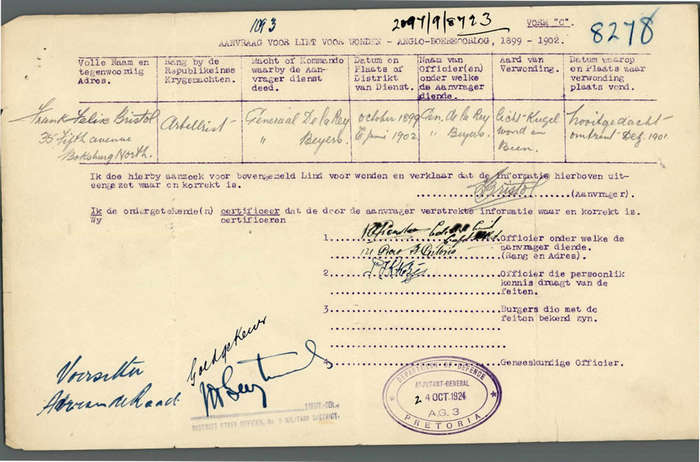 1093
2097/9/8723
VORM "C".
8278
AANVRAAG VOOR LINT VOOR WONDEN - ANGLO-BOEREOORLOG, 1899 - 1902.
Volle Naam en tegenwoordig Adres.
Rang by de Republikeinse Krygsmachten.
Macht of Kommando waarby de Aanvrager dienst deed.
Datum en Plaats of Distrikt van Dienst.
Naam van Officier(en) onder welke de Aanvrager diende.
Aard van Verwonding.
Datum waarop en Plaats waar verwonding plaats vond.
Frank Felix Bristol
35 Fifth avenue
Boksburg North.
Artillerist
Generaal De la Rey
" Beyers.
October 1899
6 Juni 1902
Gen. de la Rey
" Beyers.
licht-Kugel
wond in
Been.
Nooitgedacht
omtrent Dez. 1901.
Ik doe hierby aanzoek voor bovengemeld Lint voor wonden en verklaar dat de informatie hierboven uiteengezet waar en korrekt is.
Bristol (Aanvrager.)
Ik de ondergetekende(n) certificeer dat de door de aanvrager verstrekte informatie waar en korrekt is.
Wy certificeren
1. Officier onder welke de
aanvrager diende.
(Rang en Adres).
2. Officier die persoonlik
kennis draagt van de
feiten.
3. Burgers die met de
feiten bekend zyn.
Geneeskundige Officier.
Goedgekeur
Voorsitter
Adviserende Raad
LIEUT.-COL.
DISTRICT STAFF OFFICER, No. MILITARY DISTRICT.
DEPARTMENT OF DEFENCE
ADJUTANT-GENERAL
24 OCT. 1924
A.G. 3
PRETORIA